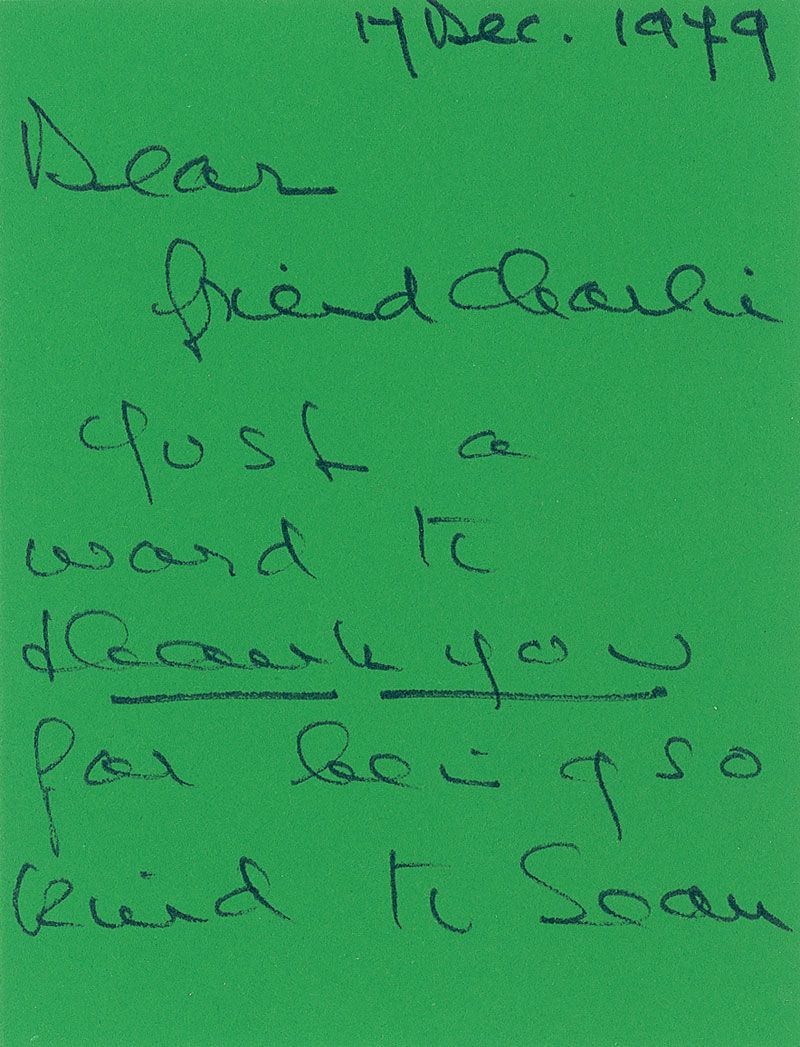 17 Dec. 1979
Dear
friend Charlie
just a
word to
thank you
for being so
kind to Sean